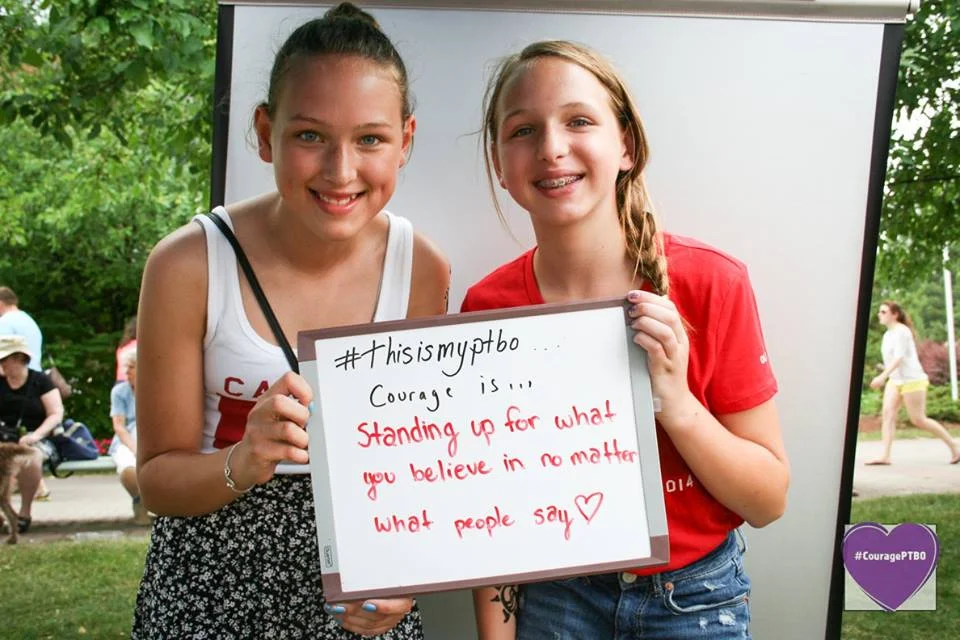 #thisismyptbo...
Courage is...
Standing up for what
you believe in no matter
what people say♡
CA
014
#CouragePTBO